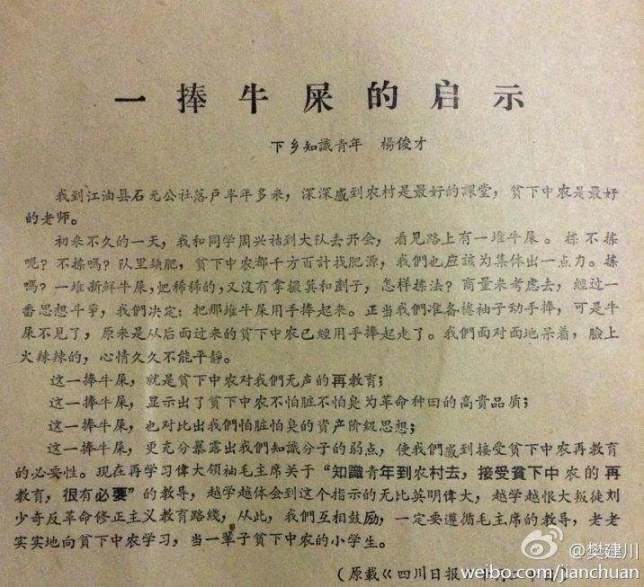 一捧牛屎的启示
下乡知識青年 楊俊才
我到江油县石元公社落户半年多来，深深感到农村是最好的課堂，貧下中农是最好
的老师。
初来不久的一天，我和同学周兴祜到大队去开会，看见路上有一堆牛屎。揀不揀
呢？不揀嗎？队里缺肥，貧下中农都千方百計找肥源，我們也应該为集体出一点力。揀
嗎？一堆新鮮牛屎，㞎稀稀的，又沒有拿撮箕和刮子，怎样揀法？商量来考虑去，經过一
番思想斗爭，我們决定：把那堆牛屎用手捧起来。正当我們准备捲袖子动手捧，可是牛
屎不见了，原来是从后面过来的貧下中农已經用手捧起走了。我們面对面地呆着，臉上
火辣辣的，心情久久不能平靜。
这一捧牛屎，就是貧下中农对我們无声的再教育；
这一捧牛屎，显示出了貧下中农不怕脏不怕臭为革命种田的高貴品质；
这一捧牛屎，也对比出我們怕脏怕臭的资产阶級思想；
这一捧牛屎，更充分暴露出我們知識分子的弱点，使我們感到接受貧下中农再教育
的必要性。现在再学习偉大領袖毛主席关于“知識青年到农村去，接受貧下中农的再
教育，很有必要”的教导，越学越体会到这个指示的无比英明偉大，越学越恨大叛徒刘
少奇反革命修正主义教育路綫，从此，我們互相鼓励，一定要遵循毛主席的教导，老老
实实地向貧下中农学习，当一輩子貧下中农的小学生。
（原载《四川日报
@樊建川
weibo.com/jianchuan